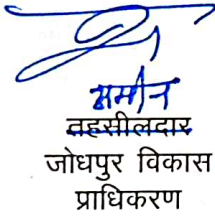 अमीन
तहसीलदार
जोधपुर विकास
प्राधिकरण